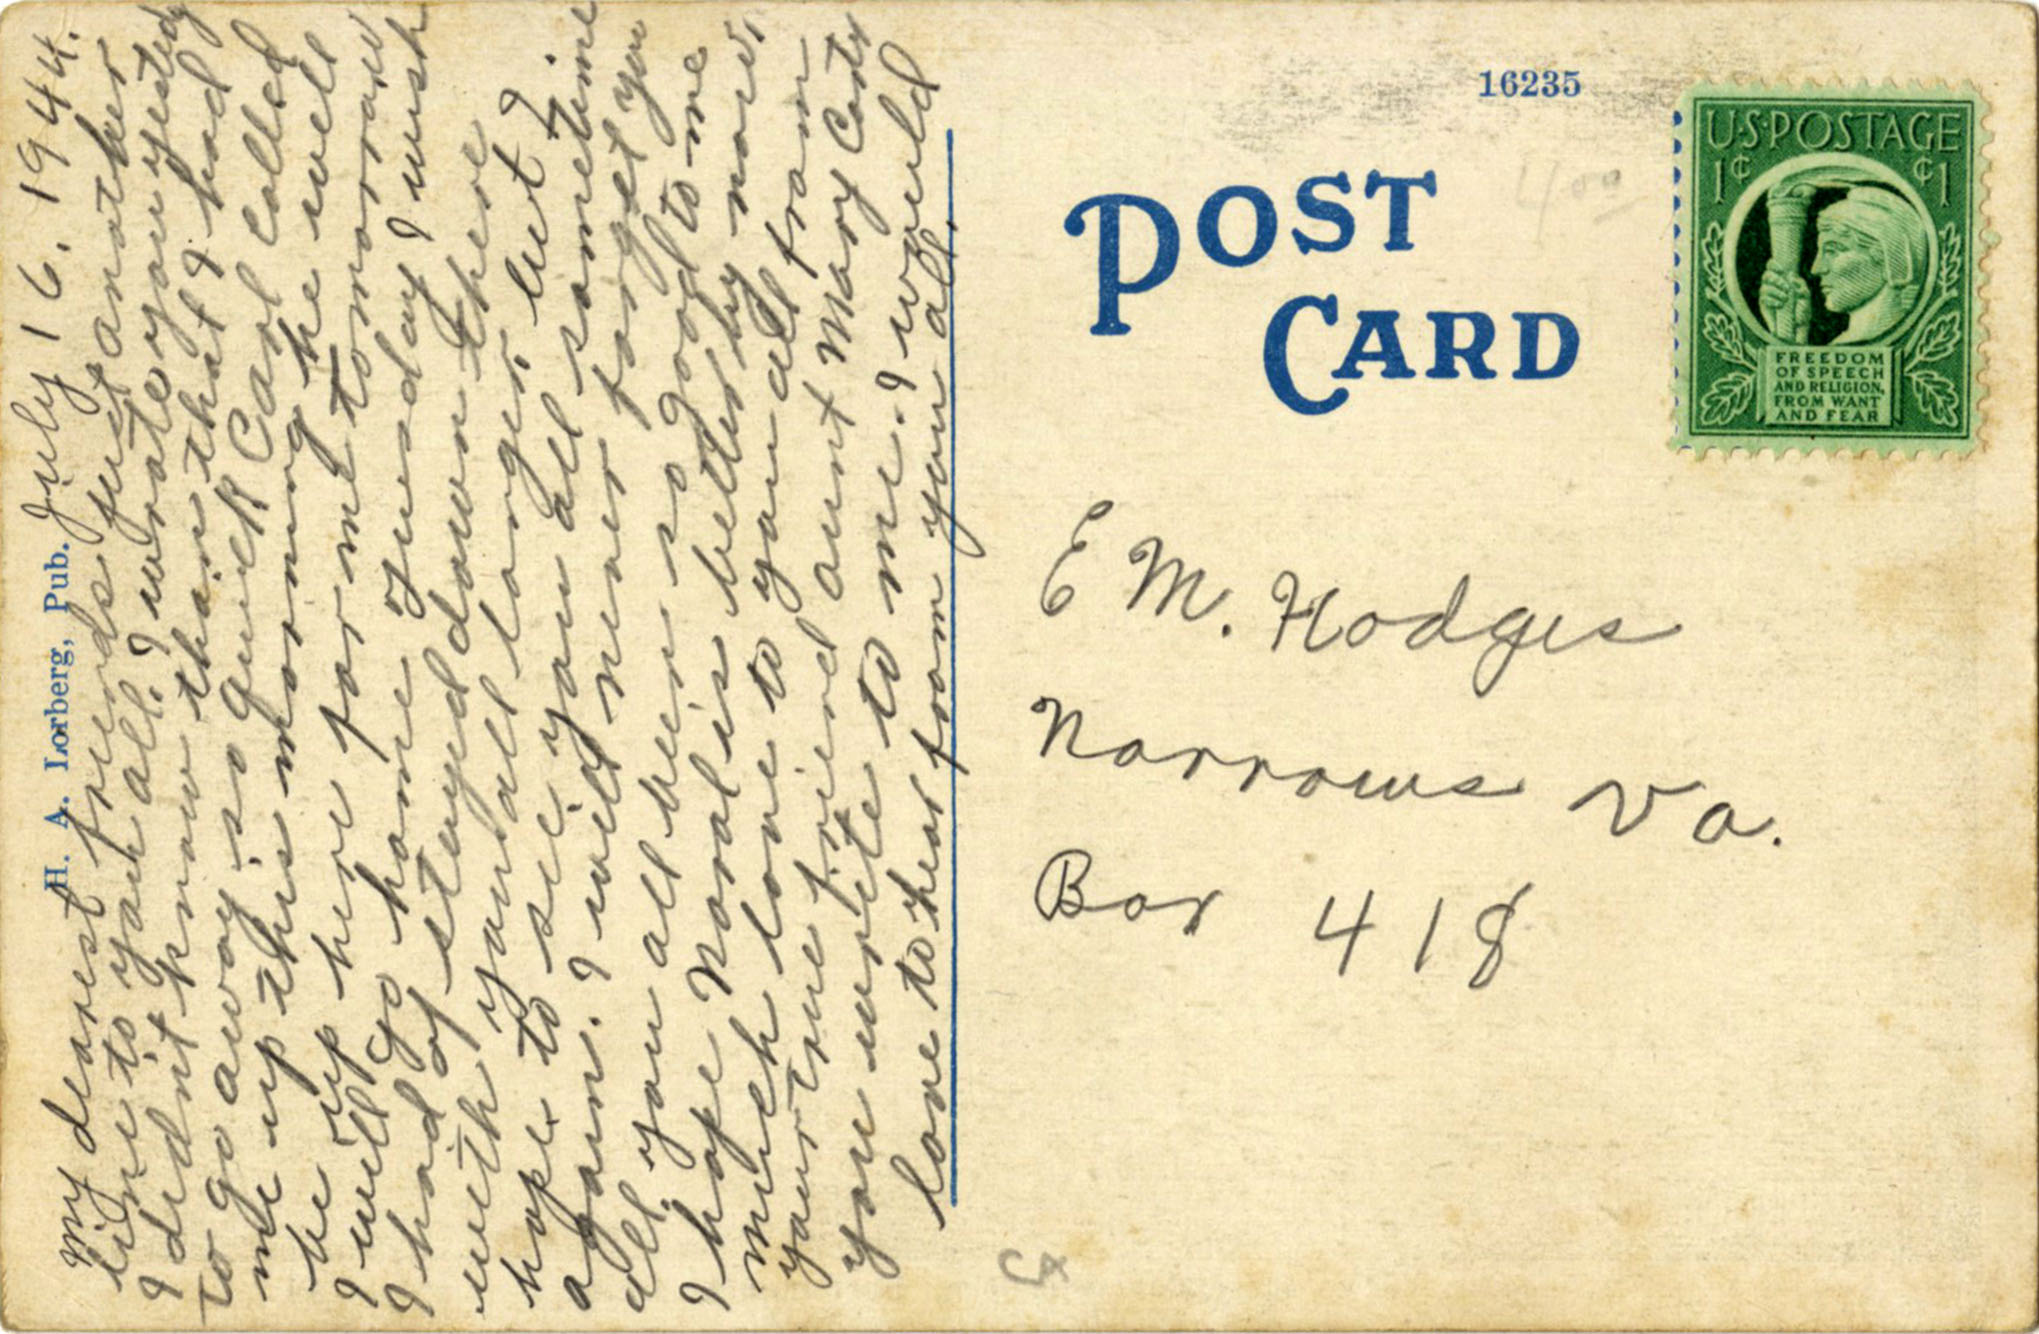 July 16. 1944.
My dearest friends just another
line to you all. I wrote you yesterday
I didnt know than that I had
to go away so quick Carl called
me up this morning he will
be up here for me tomorrow
I will go home Tuesday I wish
I had of stayed down there
with you all longer. but I
hope to see you all sometime
again. I will never forget you
all. you all been so good to me
I hope Noral is better by now.
much love to you all from
your true friend aunt Mary Carter
you write to me. I would
love to hear from you all.
H. A. Lorberg, Pub.
16235
POST
CARD
4 00
U·S·POSTAGE
1¢ ¢1
FREEDOM
OF SPEECH
AND RELIGION,
FROM WANT
AND FEAR
E M. Hodges
Narrows Va.
Box 418